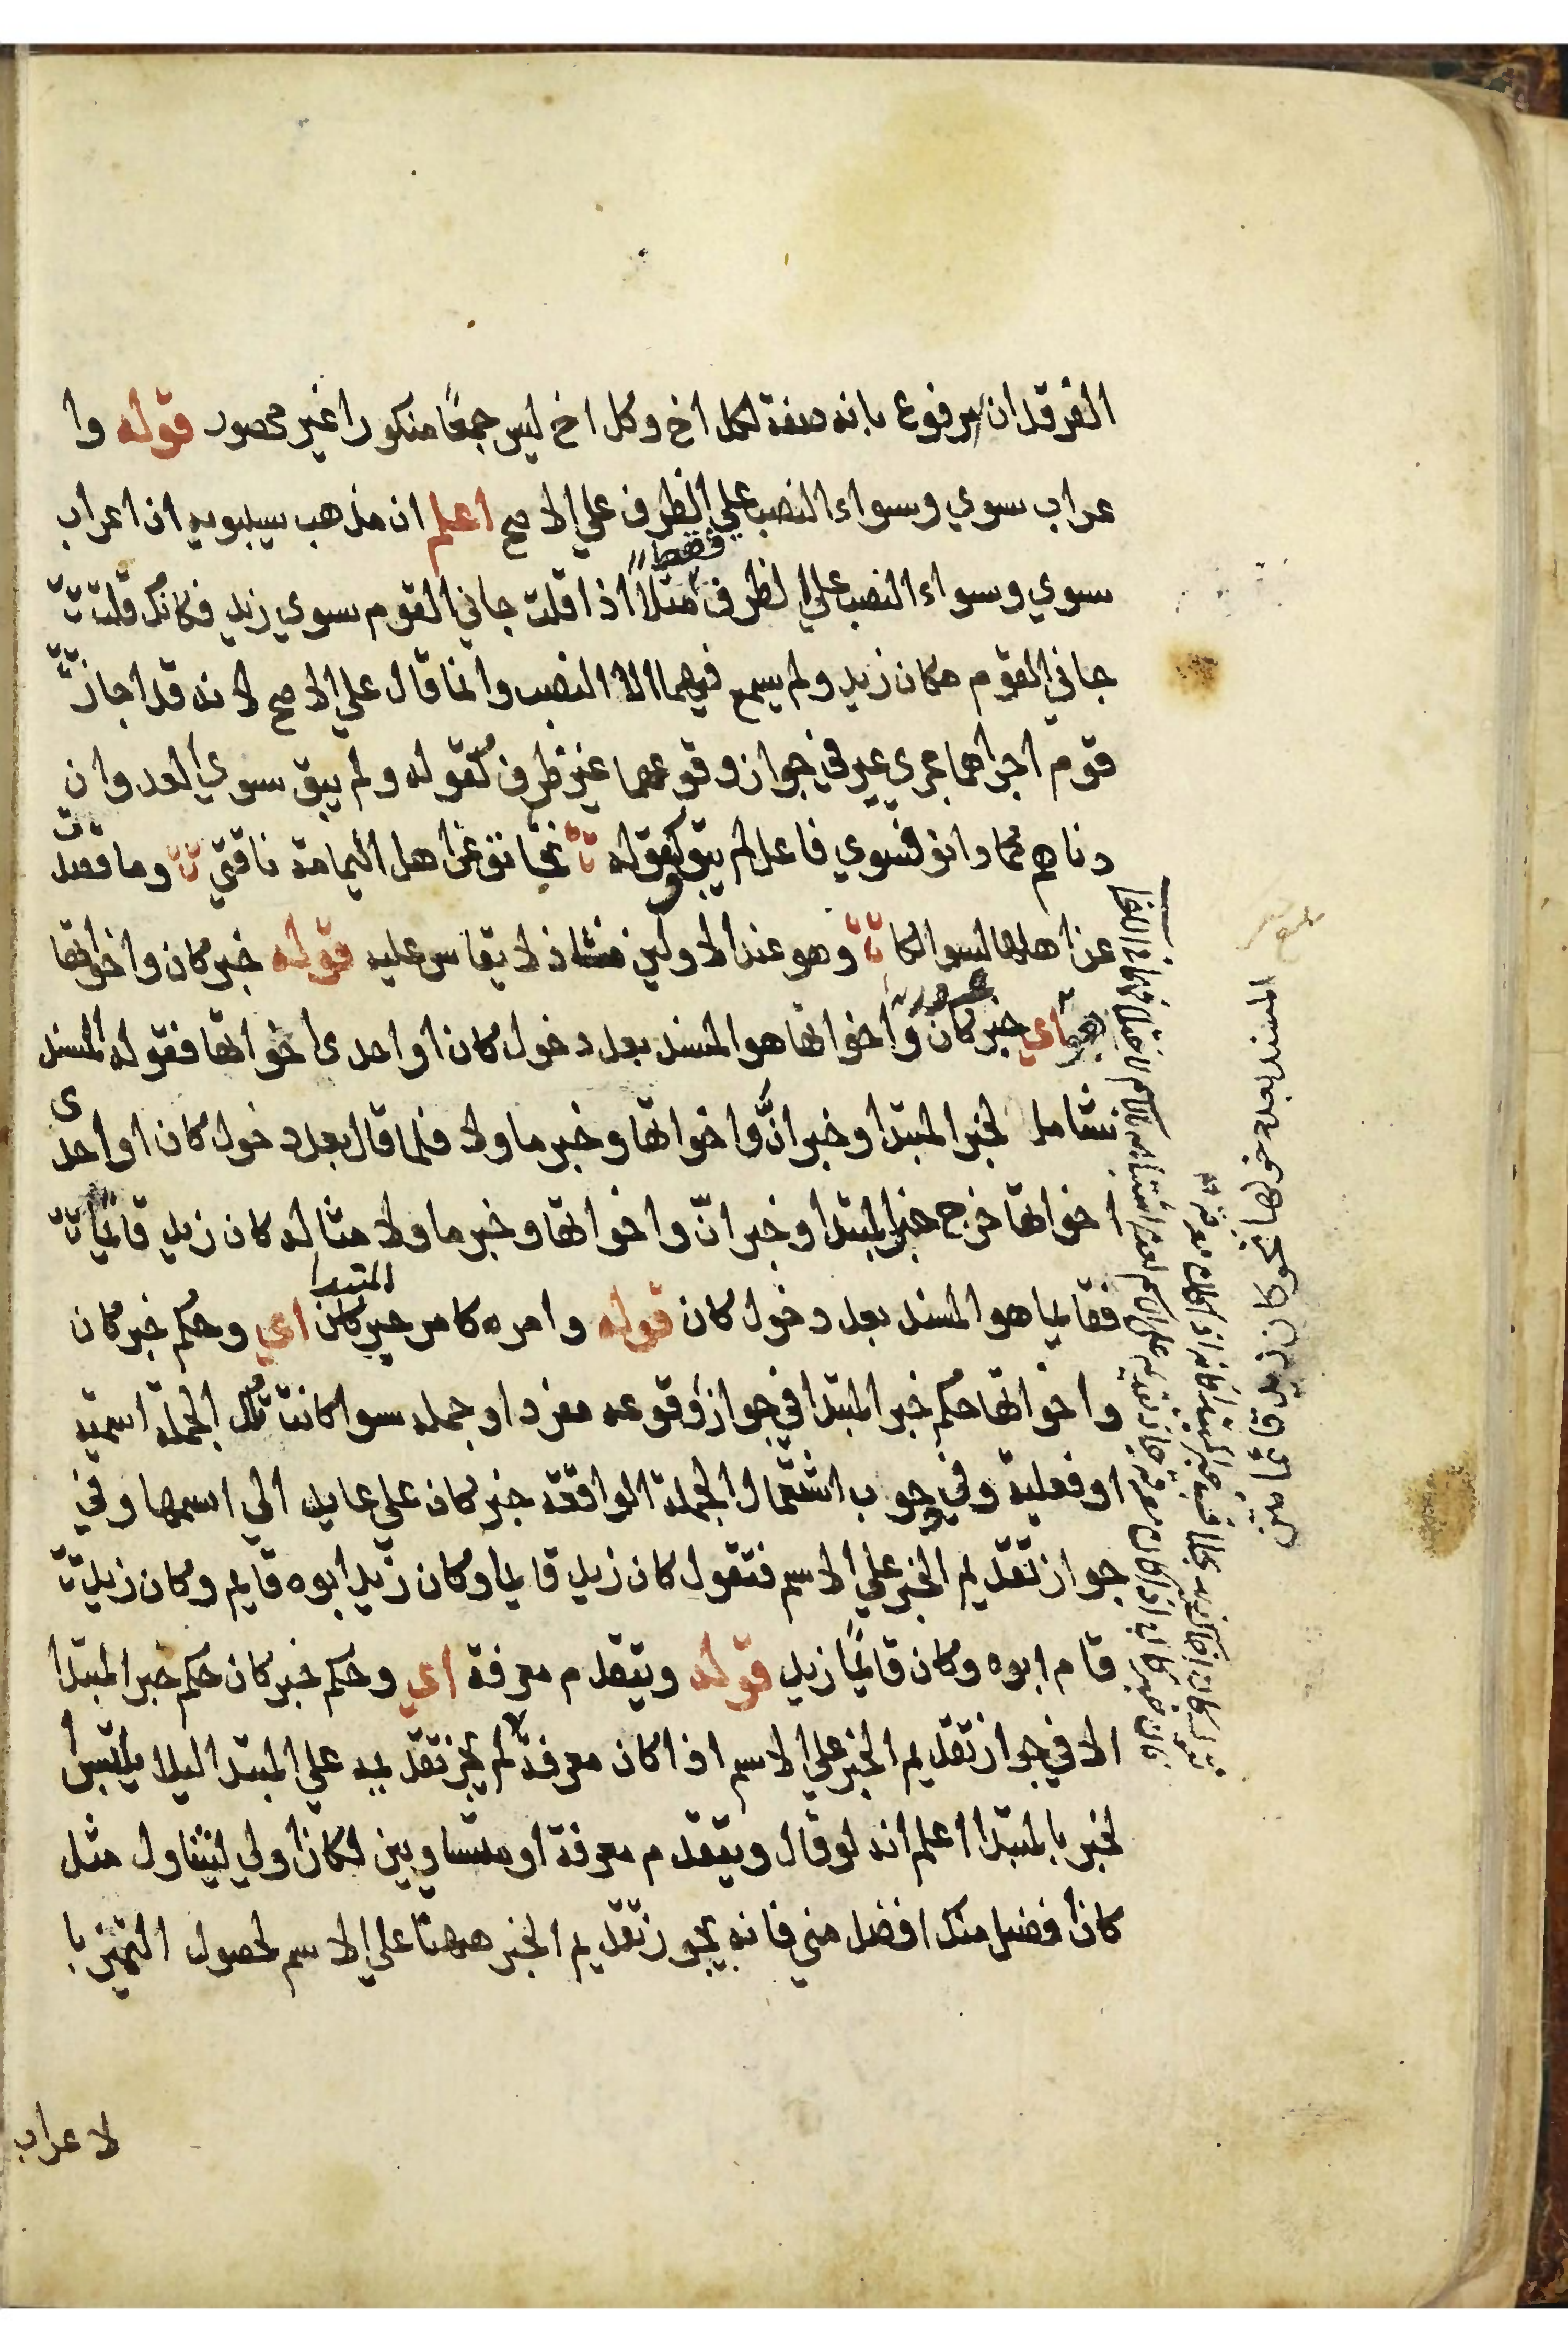 الفرقدان مرفوع بانه صفة لكل اخ وكل اخ ليس جمعًا منكورا غير محصور قوله وا
عراب سوي وسواء النصب علي الظرف علي الاصح اعلم ان مذهب سيبويه ان اعراب
سوي وسواء النصب علي الظرف فقط مثلاً اذا قلت جاني القوم سوي زيد فكانك قلت
جاني القوم مكان زيد ولم يسمع فيهما الا النصب وانما قال علي الاصح لانه قد اجاز
قوم اجراهما مجري غير في جواز وقوعهما غير ظرف كقوله ولم يبق سوي العدوان
دناهم كما دانوا فسوي فاعل لم يبق وكقوله تجانف عن اهل اليمامة ناقتي وما قصدت
عن اهلها لسوائكا وهو عند الاولين شاذ لا يقاس عليه قوله خبر كان واخواتها
هو اي خبر كان واخواتها هو المسند بعد دخول كان او احدى اخواتها فقوله المسند
شامل لخبر المبتدا وخبر انّ واخواتها وخبر ما ولا فلما قال بعد دخول كان او احدى
اخواتها خرج خبر المبتدا وخبر انّ واخواتها وخبر ما ولا مثاله كان زيد قائمًا
فقايما هو المسند بعد دخول كان قوله وامره كامر خبر المبتدا اي وحكم خبر كان
واخواتها حكم خبر المبتدا في جواز وقوعه مفردا وجمله سوا كانت تلك الجملة اسمية
او فعلية وفي وجوب اشتمال الجملة الواقعة خبر كان علي عايد الي اسمها وفي
جواز تقديم الخبر علي الاسم فتقول كان زيد قايما وكان زيد ابوه قايم وكان زيد
قام ابوه وكان قائمًا زيد قوله ويتقدم معرفة اي وحكم خبر كان حكم خبر المبتدا
الا في جواز تقديم الخبر علي الاسم اذا كان معرفة لم يجز تقديمه علي المبتدا ليلا يلتبس ا
لخبر بالمبتدا اعلم انه لو قال ويتقدم معرفة او متساويين لكان اولي ليتناول مثل
كان افضل منك افضل مني فانه يجوز تقديم الخبر ههنا علي الاسم لحصول التميز با
لاعراب
المسند بعد دخولها نحو كان زيد قائما